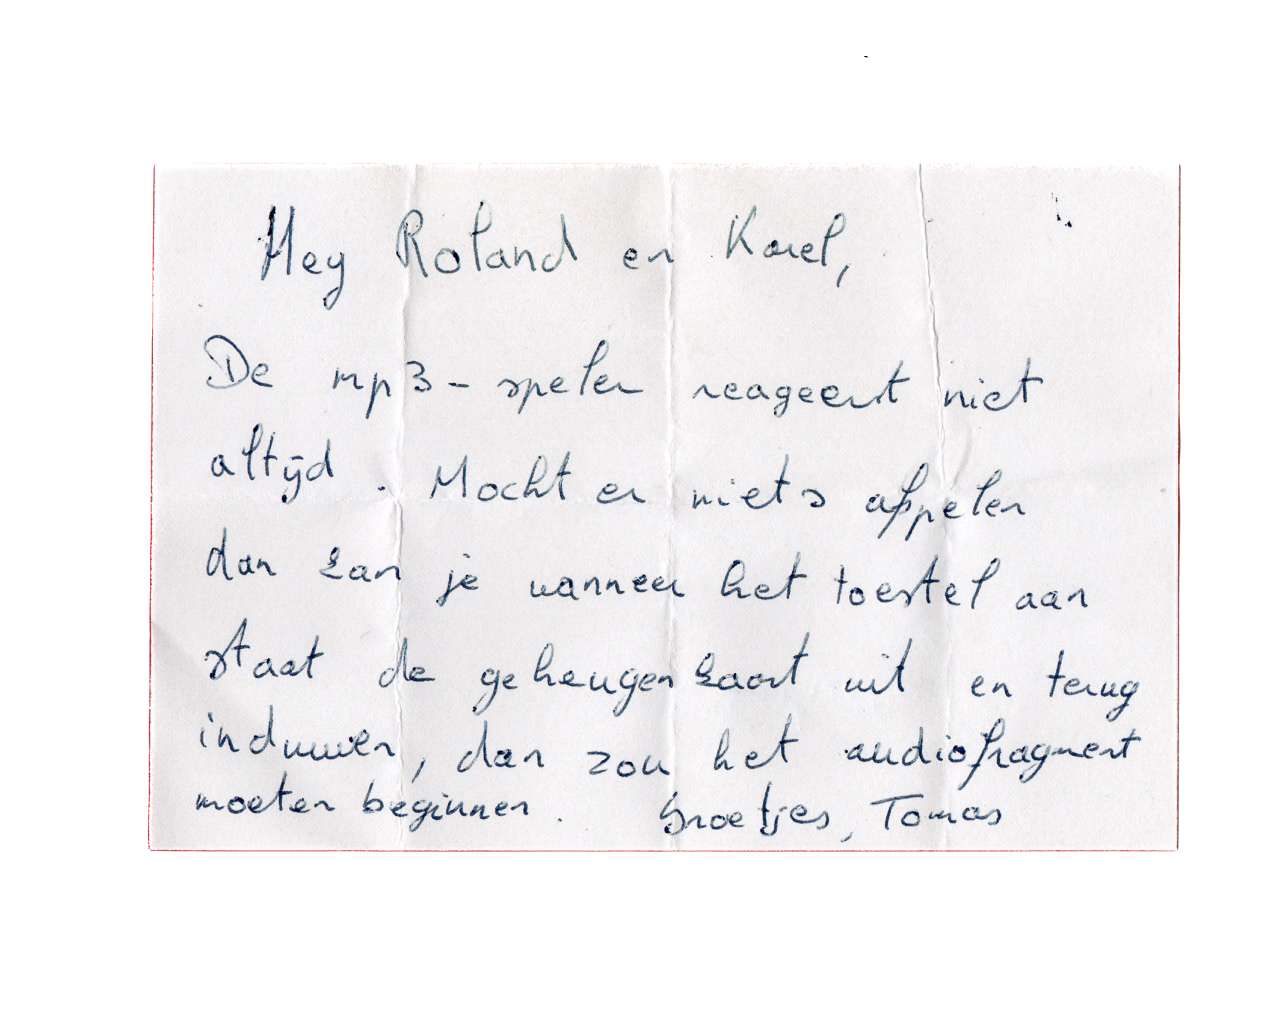 Hey Roland en Karel,
De mp3-speler reageert niet
altijd. Mocht er niets afspelen
dan kan je wanneer het toestel aan
staat de geheugenkaart uit en terug
induwen, dan zou het audiofragment
moeten beginnen. Groetjes, Tomas